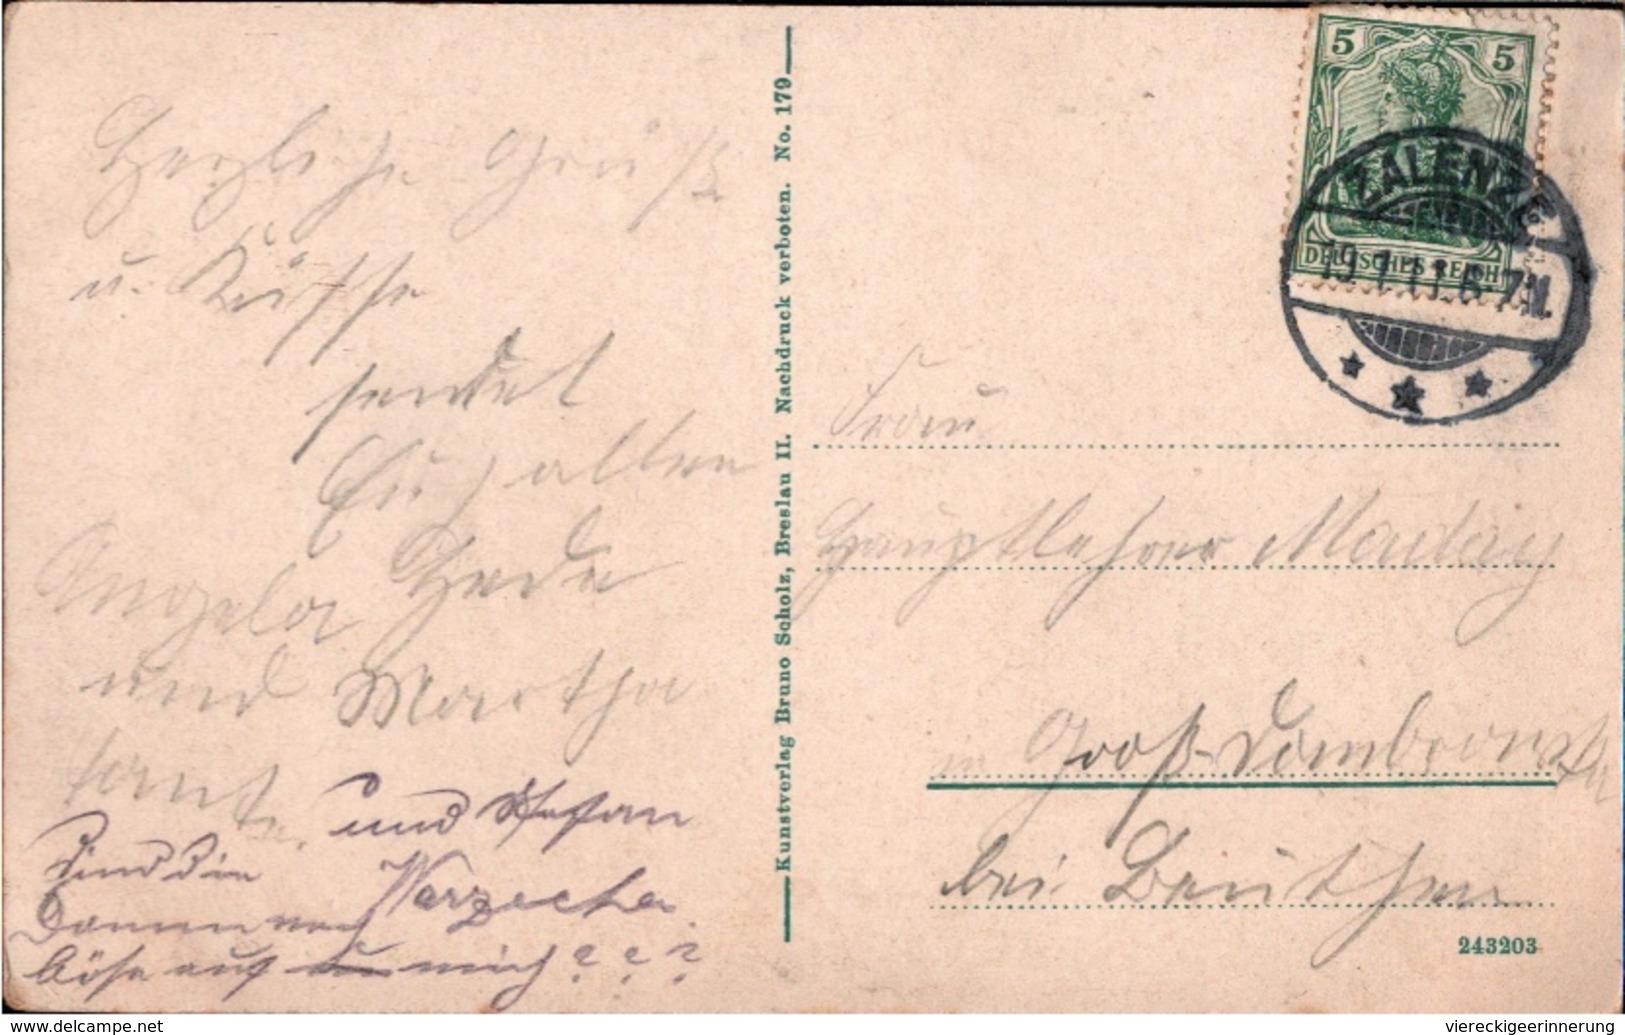 Herzliche Grüße
u. Küsse
sendet
Euch allen
Hede
Angela
und Martha
Tante.
und Stefan
Warzecha.
Sind die
Damen noch
böse auf mich???
Kunstverlag Bruno Scholz, Breslau II. Nachdruck verboten. No. 179
5 5
DEUTSCHES REICH
ZALENZE
19.1.13.6-7N.
Frau
Hauptlehrer
in Groß-Dombrowka
bei Beuthen
243203
www.delcampe.net
viereckigeerinnerung